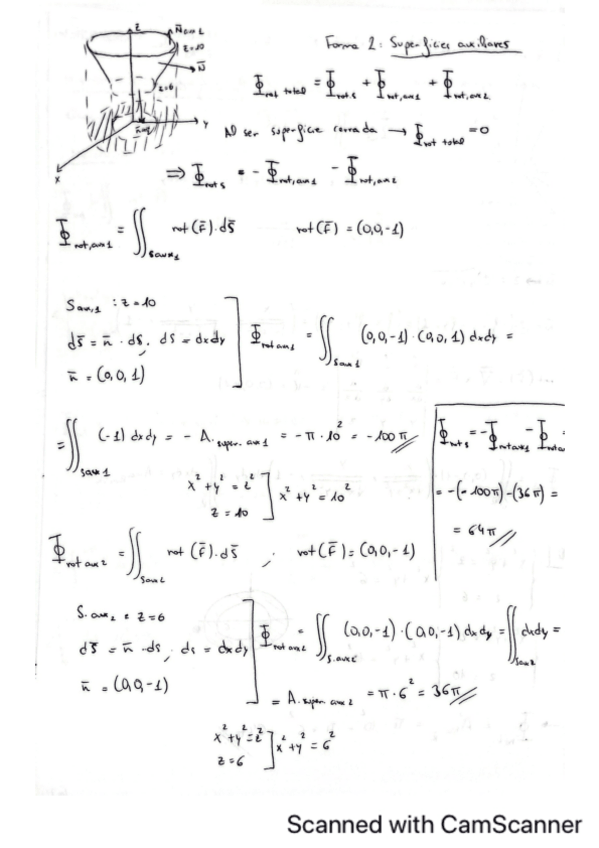 Forma 2: Superficies auxiliares
z
N aux 1
z=10
N̄
z=6
n̄ aux2
y
x
Φ rot total = Φ rot s + Φ rot, aux1 + Φ rot, aux2
Al ser superficie cerrada → Φ rot total = 0
⇒ Φ rot s = - Φ rot, aux1 - Φ rot, aux2
Φ rot, aux1 = ∬ Saux1 rot (F̄). dS̄ rot (F̄) = (0,0,-1)
Saux1 : z = 10
dS̄ = n̄ · dS, dS = dxdy
n̄ = (0,0,1)
Φ rot aux1 = ∬ Saux1 (0,0,-1) · (0,0,1) dxdy =
= ∬ Saux1 (-1) dxdy = - A. super. aux1 = -π · 10² = -100π
x² + y² = z²
z = 10
x² + y² = 10²
Φ rot s = - Φ rot aux1 - Φ rot au
= -(-100π) - (36π) =
= 64π
Φ rot aux2 = ∬ Saux2 rot (F̄). dS̄ , rot (F̄) = (0,0,-1)
S. aux2 : z = 6
dS̄ = n̄ · ds , ds = dxdy
n̄ = (0,0,-1)
Φ rot aux2 = ∬ S.aux2 (0,0,-1) · (0,0,-1) dxdy = ∬ Saux2 dxdy =
= A. super aux2 = π · 6² = 36π
x² + y² = z²
z = 6
x² + y² = 6²
Scanned with CamScanner